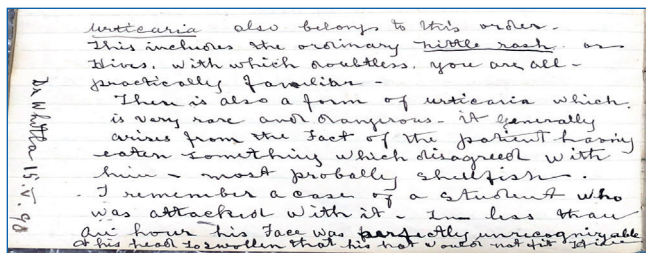 urticaria also belongs to this order.
This includes the ordinary nettle rash or
Hives, with which doubtless, you are all -
practically familiar -
There is also a form of urticaria which
is very rare and dangerous - it generally
arises from the Fact of the patient having
eaten something which disagreed with
him - most probably shellfish.
I remember a case of a student who
was attacked with it - In less than
an hour his Face was perfectly unrecognizable
& his head so swollen that his hat would not fit
Dr Whitla 15.V.90